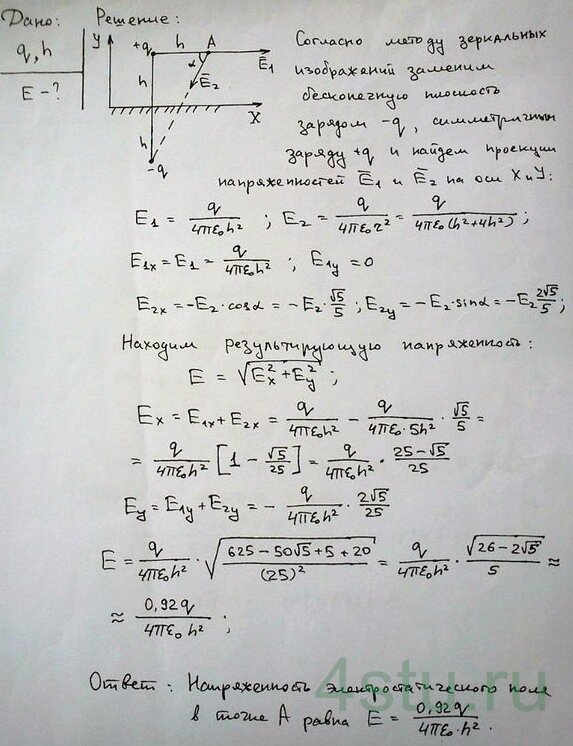 Дано:
q, h
E - ?
Решение:
y +q h A E̅₁
α E̅₂
h
X
h
-q
Согласно методу зеркальных
изображений заменим
бесконечную плоскость
зарядом -q, симметричным
заряду +q и найдем проекции
напряженностей E̅₁ и E̅₂ на оси X и Y:
E₁ = q/(4πε₀h²) ; E₂ = q/(4πε₀r²) = q/(4πε₀(h²+4h²)) ;
E₁ₓ = E₁ = q/(4πε₀h²) ; E₁y = 0
E₂ₓ = -E₂·cosα = -E₂·√5/5 ; E₂y = -E₂·sinα = -E₂ 2√5/5 ;
Находим результирующую напряженность:
E = √(Eₓ² + Ey²) ;
Eₓ = E₁ₓ + E₂ₓ = q/(4πε₀h²) - q/(4πε₀·5h²) · √5/5 =
= q/(4πε₀h²) [1 - √5/25] = q/(4πε₀h²) · (25-√5)/25
Ey = E₁y + E₂y = - q/(4πε₀h²) · 2√5/25
E = q/(4πε₀h²) · √((625-50√5+5+20)/(25)²) = q/(4πε₀h²) · √(26-2√5)/5 ≈
≈ 0,92q/(4πε₀h²) ;
Ответ: Напряженность электростатического поля
в точке A равна E = 0,92q/(4πε₀·h²).
4stu.ru